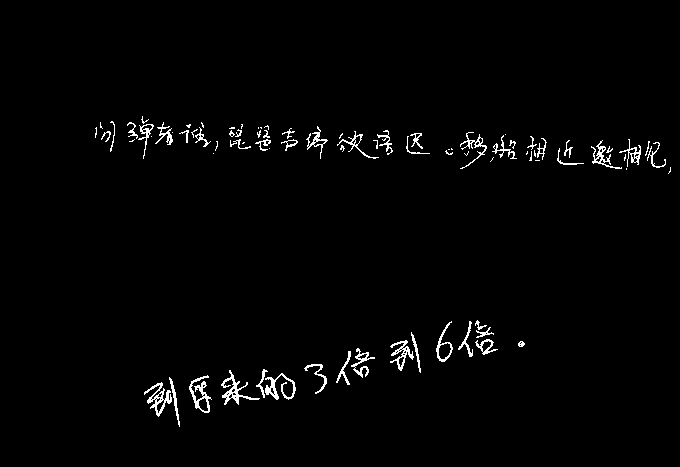 问弹者谁,琵琶声停欲语迟。移船相近邀相见,
到原来的3倍到6倍。